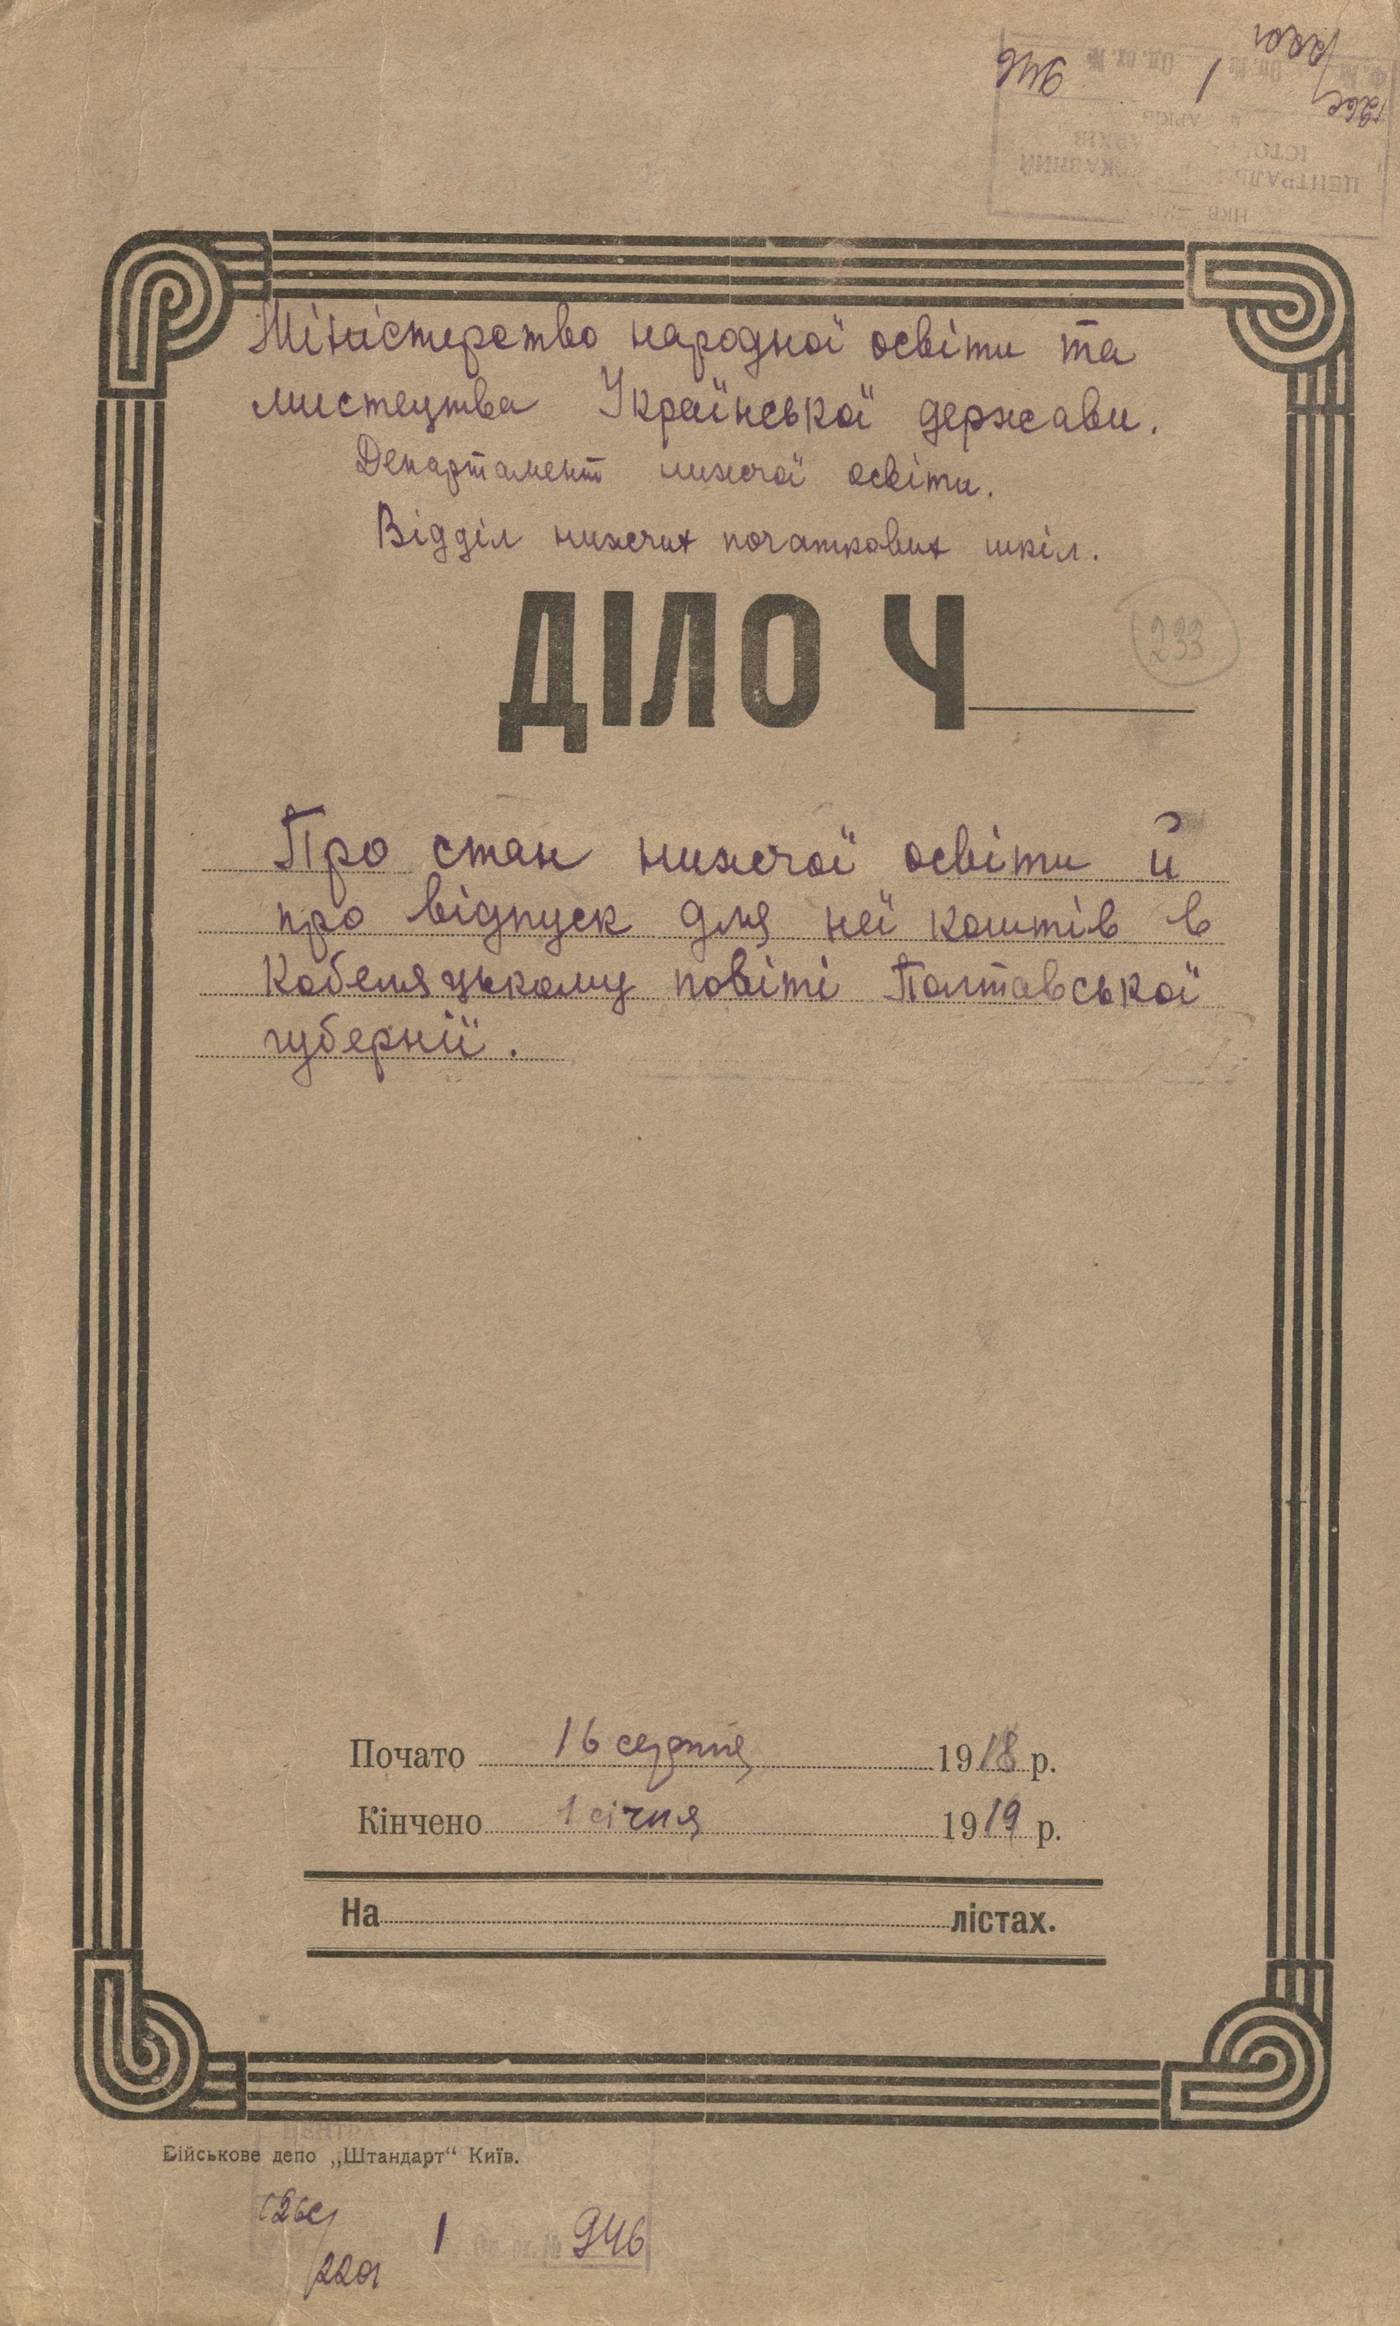 946
1
2201
Ф. № Оп. № Од. зх. №
НКВ
Міністерство народної освіти та
мистецтва Української держави.
Департамент нижчої освіти.
Відділ нижчих початкових шкіл.
ДІЛО Ч
233
Про стан нижчої освіти й
про відпуск для неї коштів в
Кобеляцькому повіті Полтавської
губернії.
Почато 16 серпня 1918 р.
Кінчено 1 січня 1919 р.
На лістах.
Військове депо „Штандарт“ Київ.
1 946
2201